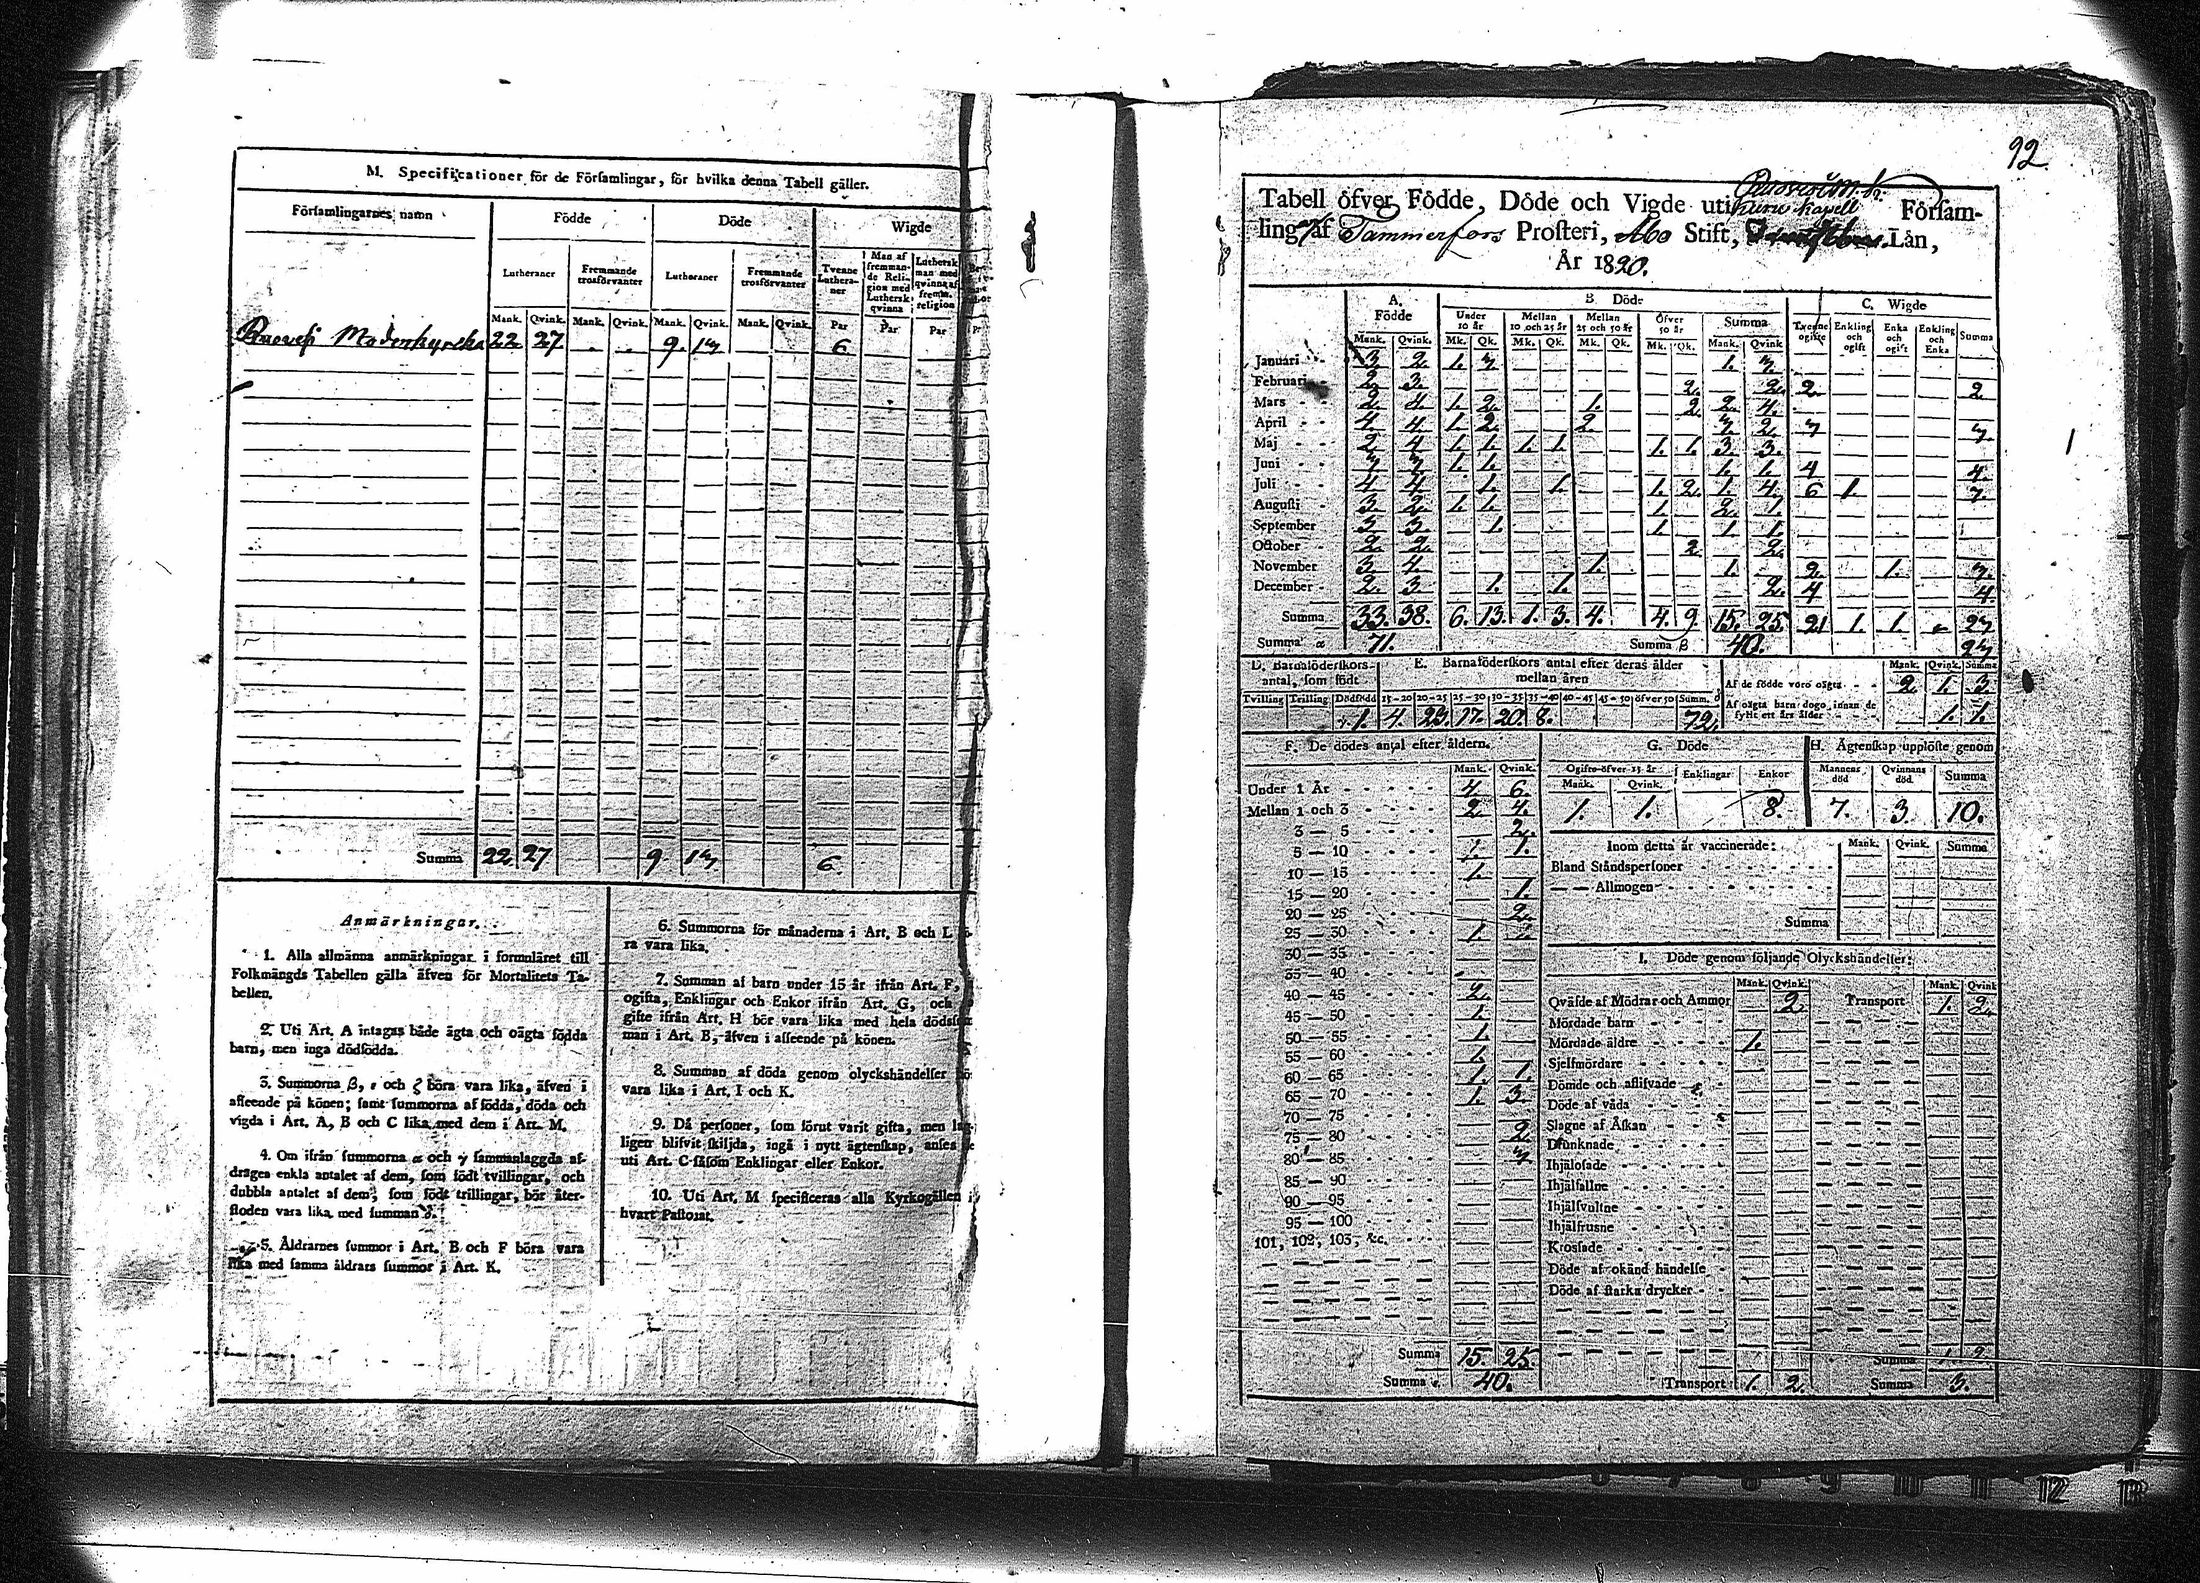 M. Specificationer för de Församlingar, för hvilka denna Tabell gäller.
Församlingarnes namn
Födde
Döde
Wigde
Lutheraner
Fremmande trosförvanter
Lutheraner
Fremmande trosförvanter
Tvenne Lutheraner
Man af fremmande Religion med Luthersk qvinna
Luthersk man med qvinna af fremm. religion
Mank. Qvink. Mank. Qvink. Mank. Qvink. Mank. Qvink. Par Par Par
Ruovesi Moderkyrcka 22 27 9. 13 6
Summa 22 27 9 13 6.
Anmärkningar.
1. Alla allmänna anmärkningar i formuläret till
Folkmängds Tabellen gälla äfven för Mortalitets Ta-
bellen.
2. Uti Art. A intagas både ägta och oägta födda
barn, men inga dödfödda.
3. Summorna β, ε och ζ böra vara lika, äfven i
afseende på könen; samt summorna af födda, döda och
vigda i Art. A, B och C lika med dem i Art. M.
4. Om ifrån summorna α och γ sammanlaggda af-
drages enkla antalet af dem, som födt tvillingar, och
dubbla antalet af dem, som födt trillingar, bör åter-
stoden vara lika med summan δ.
5. Åldrarnes summor i Art. B och F böra vara
lika med samma åldrars summor i Art. K.
6. Summorna för månaderna i Art. B och L
ra vara lika.
7. Summan af barn under 15 år ifrån Art. F,
ogifta, Enklingar och Enkor ifrån Art. G, och
gifte ifrån Art. H bör vara lika med hela döds
man i Art. B, äfven i afseende på könen.
8. Summan af döda genom olyckshändelser
vara lika i Art. I och K.
9. Då personer, som förut varit gifta, men
ligen blifvit skiljda, ingå i nytt ägtenskap, anses
uti Art. C såsom Enklingar eller Enkor.
10. Uti Art. M specificeras alla Kyrkogällen i
hvart Pastorat.
92
Tabell öfver Födde, Döde och Vigde uti kuru kapell Församling
af Tammerfors Prosteri, Abo Stift, Län,
År 1820.
A. Födde
B. Döde
C. Wigde
Under 10 år
Mellan 10 och 25 år
Mellan 25 och 50 år
Öfver 50 år
Summa
Tvenne ogifte
Enkling och ogift
Enka och ogift
Enkling och Enka
Summa
Mank. Qvink. Mk. Qk. Mk. Qk. Mk. Qk. Mk. Qk. Mank. Qvink
Januari 3. 2. 1. 3. 1. 3.
Februari 2. 3. 2. 2. 2. 2
Mars 2. 4. 1. 2. 1. 2. 2. 4.
April 4 4 1. 2. 2. 3. 2. 3 3.
Maj 2 4 1. 1. 1. 1. 1. 1. 3. 3.
Juni 3 3. 1. 1. 1. 1. 4 4.
Juli 4 4 1. 1. 1. 2. 1. 4. 6 1. 7.
Augusti 3. 2. 1. 1. 1. 2. 1.
September 3 3. 1. 1. 1. 1.
October 2. 2. 2 2.
November 3 4 1. 1. 2. 1. 3.
December 2. 3 1. 1. 2. 4 4.
Summa 33. 38. 6. 13. 1. 3. 4. 4. 9 15. 25. 21 1. 1. 23
Summa α 71. Summa β 40. 23
D. Barnaföderskors antal, som födt
E. Barnaföderskors antal efter deras ålder mellan åren
Mank. Qvink. Summa
Tvilling Trilling Dödfödd 15-20 20-25 25-30 30-35 35-40 40-45 45-50 öfver 50 Summ. δ
1. 4. 23. 17. 20. 8. 72.
Af de födde voro oägta 2. 1. 3.
Af oägta barn dogo innan de fyllt ett års ålder 1. 1.
F. De dödes antal efter åldern.
Mank. Qvink.
Under 1 År 4 6.
Mellan 1 och 3 2 4.
3 — 5 2.
5 — 10 1.
10 — 15 1.
15 — 20 1.
20 — 25 2.
25 — 30 1.
30 — 35
35 — 40
40 — 45 2.
45 — 50 1.
50 — 55 1.
55 — 60 1.
60 — 65 1. 1.
65 — 70 1. 3.
70 — 75
75 — 80 2.
80 — 85 3
85 — 90
90 — 95
95 — 100
101, 102, 103, &c.
Summa 15. 25.
Summa ε. 40.
G. Döde
Ogifte öfver 15 år
Mank. Qvink. Enklingar Enkor
1. 1. 8.
H. Ägtenskap upplöste genom
Mannens död Qvinnans död Summa
7. 3. 10.
Inom detta år vaccinerade: Mank. Qvink. Summa
Bland Ståndspersoner
— — Allmogen
Summa
I. Döde genom följande Olyckshändelser:
Mank. Qvink. Mank. Qvink
Qväfde af Mödrar och Ammor 2. Transport 1. 2.
Mördade barn
Mördade äldre 1.
Sjelfmördare
Dömde och aflifvade
Döde af våda
Slagne af Åskan
Drunknade
Ihjälofade
Ihjälfallne
Ihjälsvultne
Ihjälfrusne
Krossade
Döde af okänd händelse
Döde af starka drycker
Summa 1. 2.
Transport 1. 2. Summa 3.
8 9 10 11 12 13